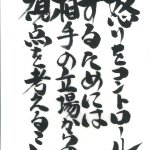 怒りをコントロール
するためには
相手の立場からの
視点を考えること